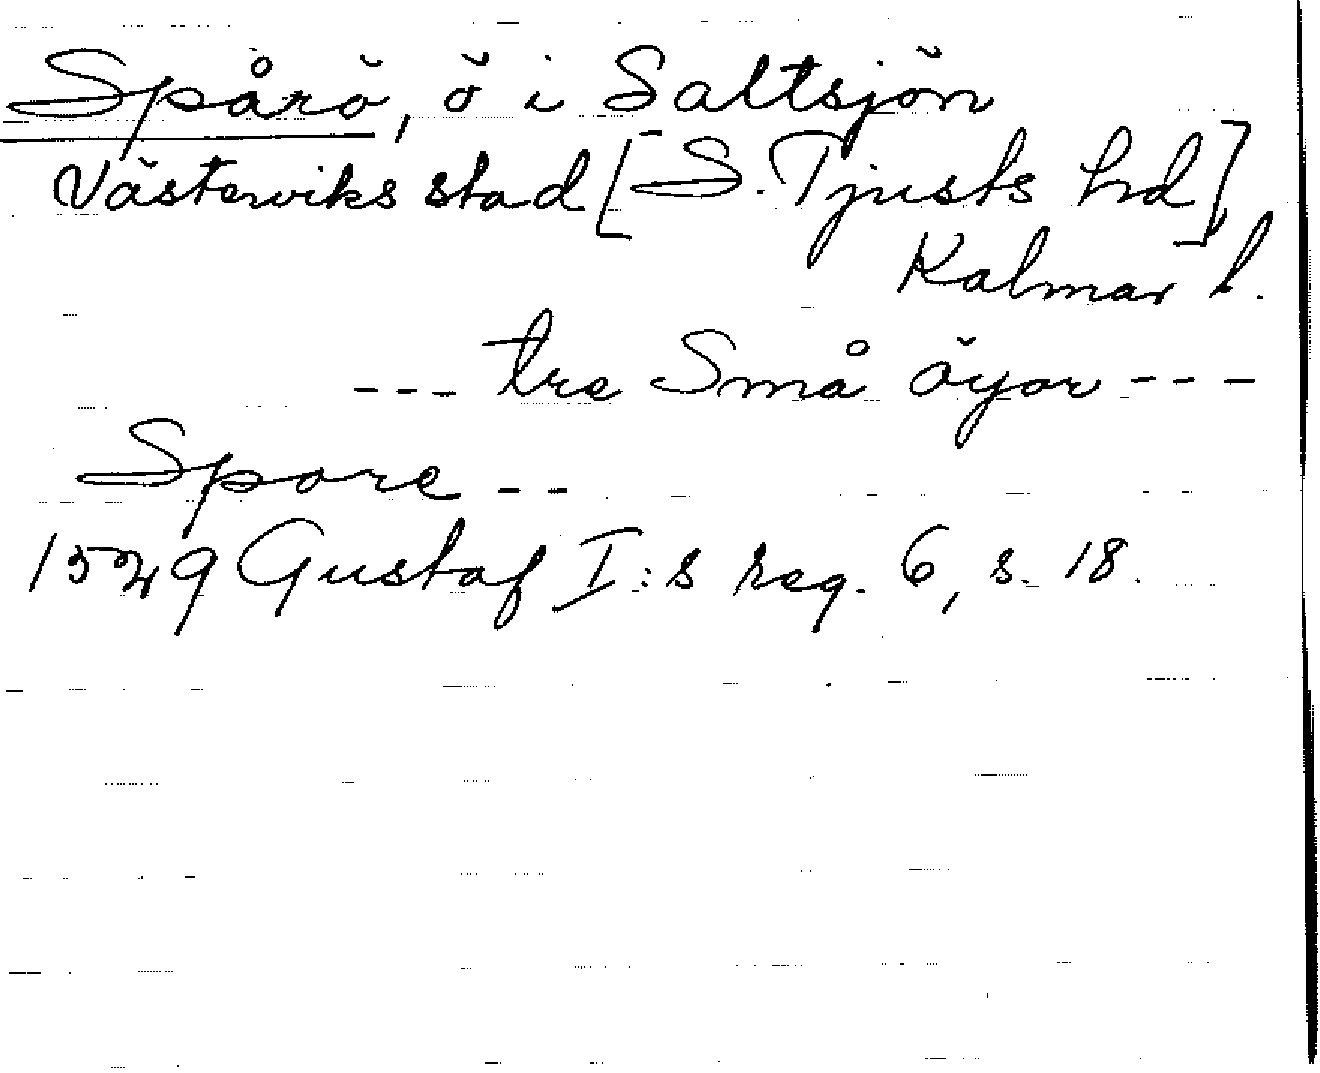 Spårö, ö i Saltsjön
Västerviks stad [S. Tjusts hd]
Kalmar l.
--- tre Små öyar ---
Spore --
1529 Gustaf I:s reg. 6, s. 18.